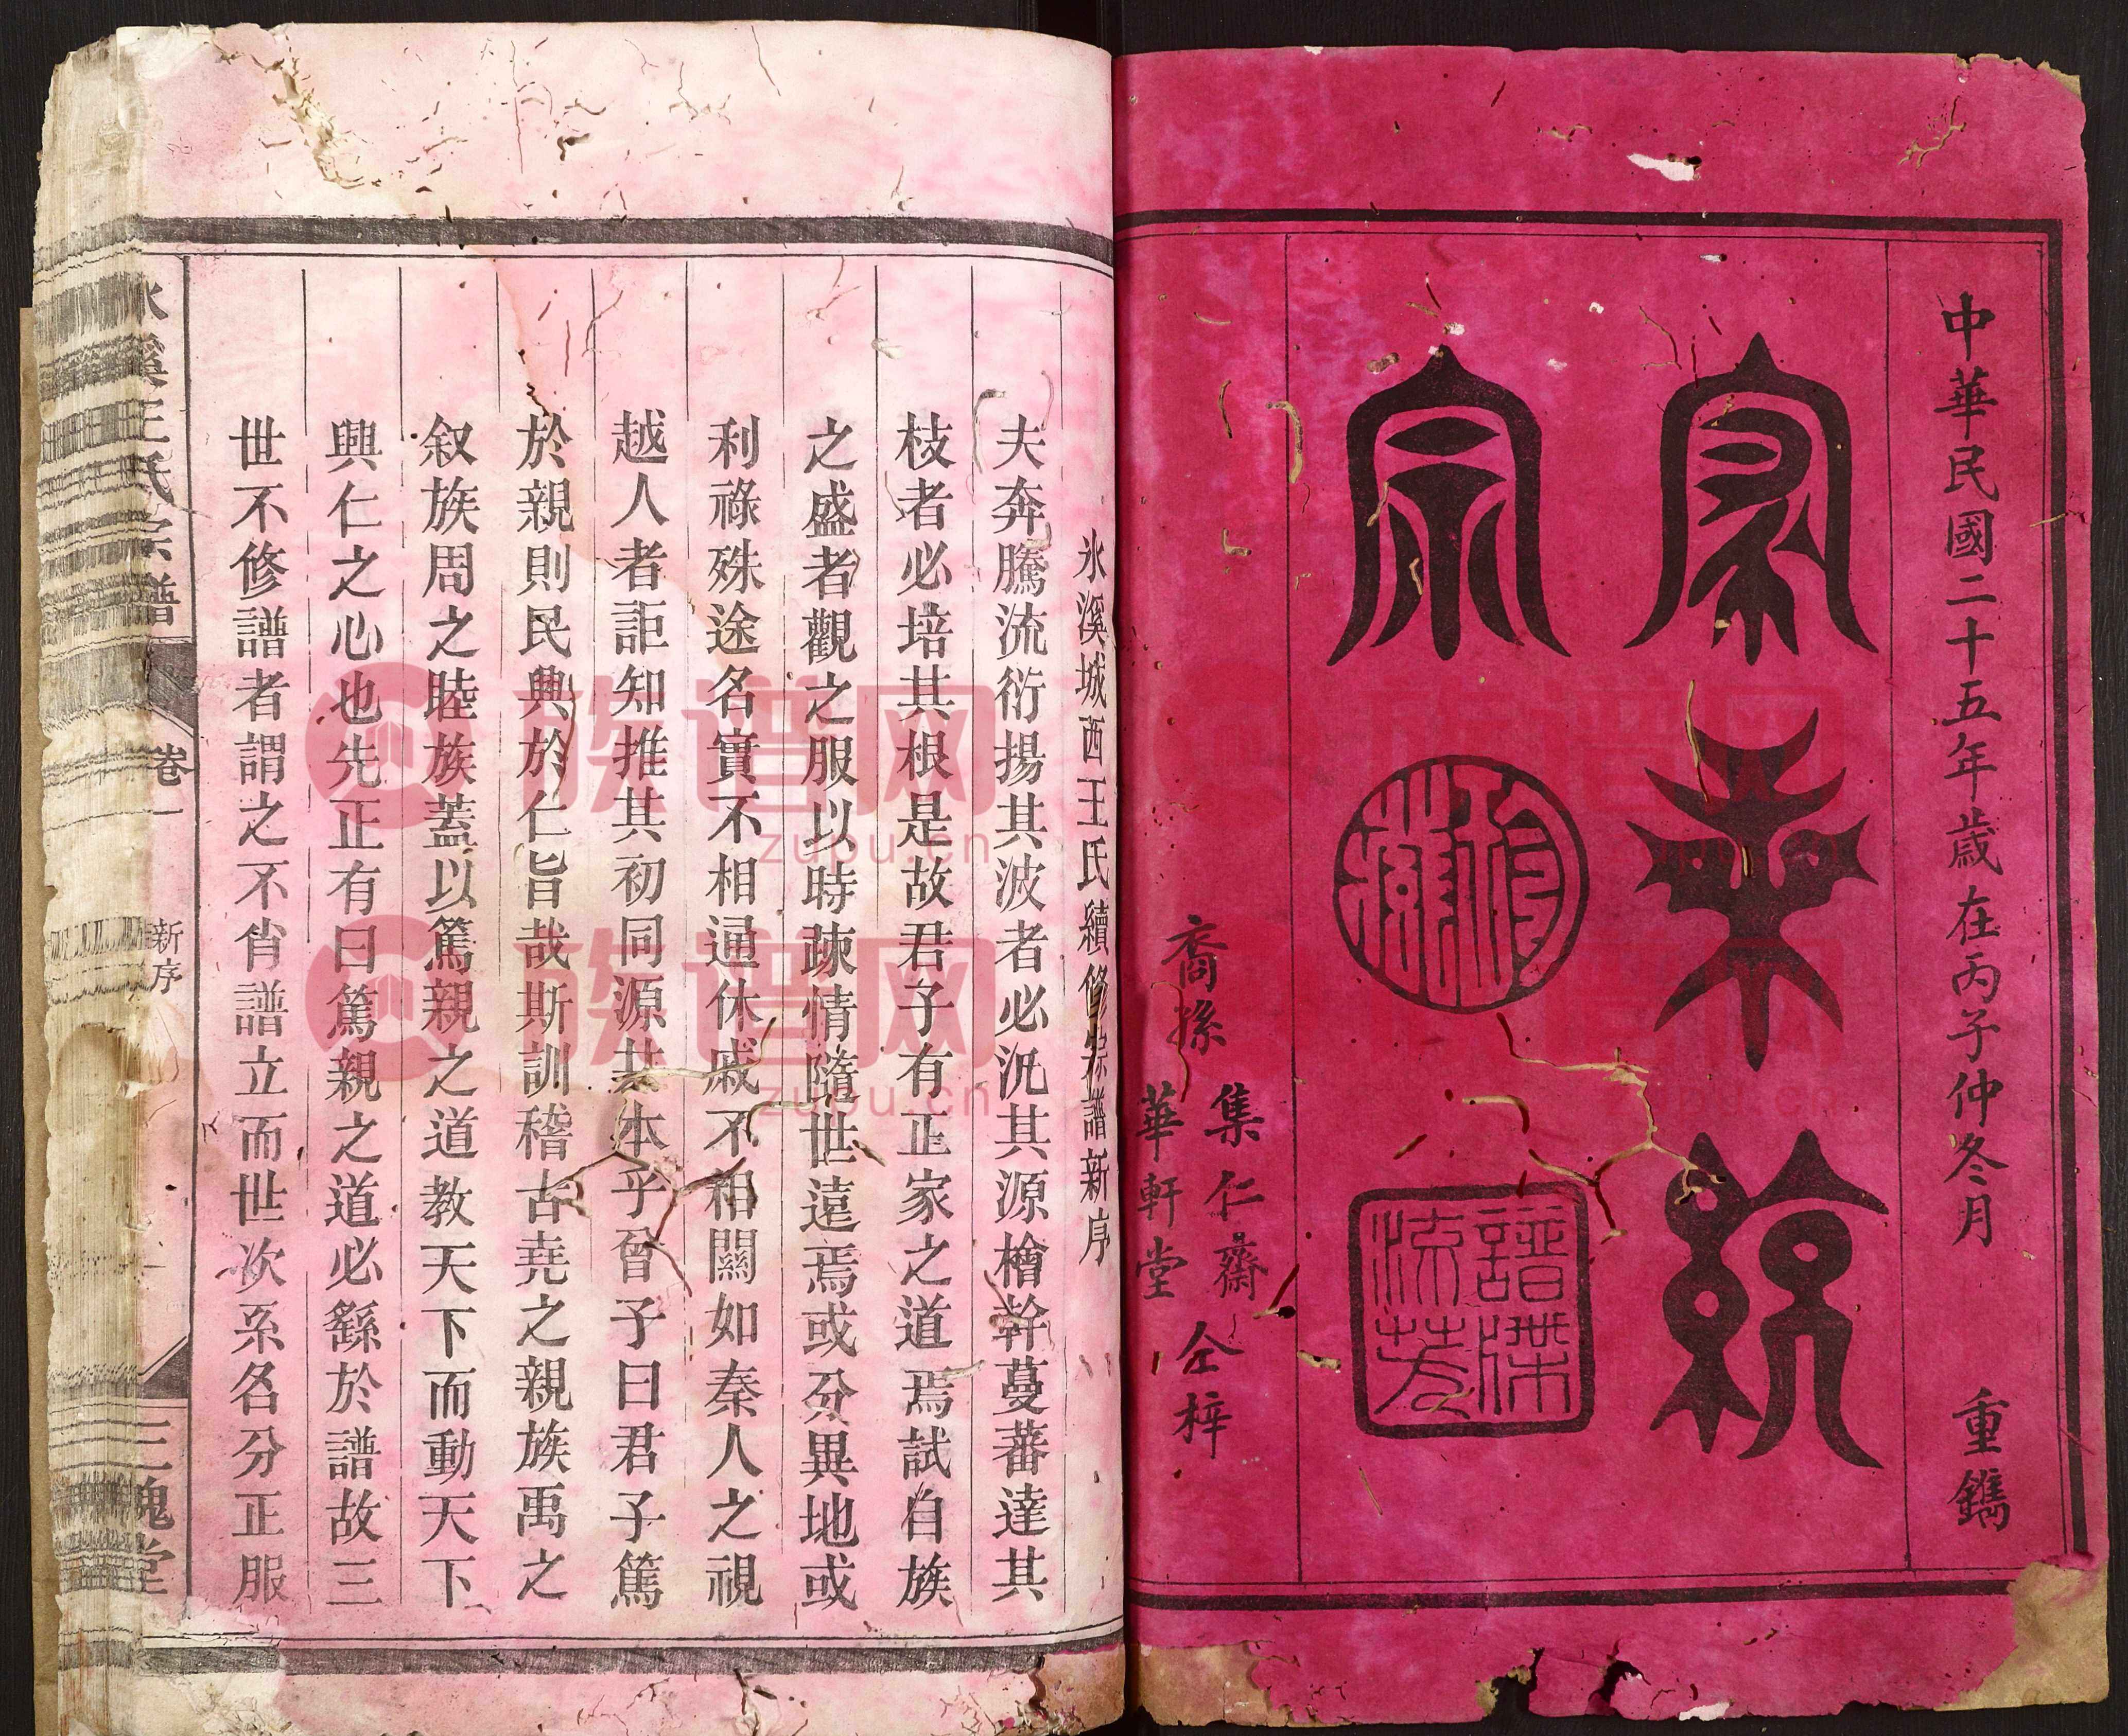 中華民國二十五年歲在丙子仲冬月 重鐫
家乘統
宗
譜牒流芳
裔孫 集仁齋 華軒堂 仝梓
氷溪城西王氏續修宗譜新序
夫奔騰流衍揚其波者必汎其源檜幹蔓蕃達其
枝者必培其根是故君子有正家之道焉試自族
之盛者觀之服以時疎情隨世遠焉或分異地或
利祿殊途名實不相通休戚不相關如秦人之視
越人者詎知推其初同源共本乎曾子曰君子篤
於親則民興於仁旨哉斯訓稽古堯之親族禹之
叙族周之睦族蓋以篤親之道教天下而動天下
興仁之心也先正有曰篤親之道必繇於譜故三
世不修譜者謂之不肖譜立而世次系名分正服
氷溪王氏宗譜 卷一 新序 三槐堂
族谱网
zupu.cn
族谱网
zupu.cn